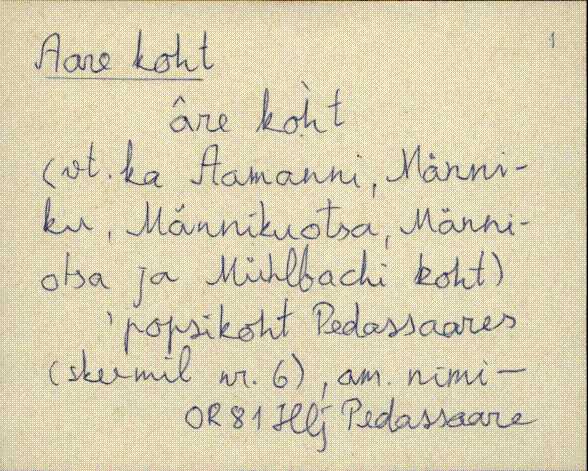 Aare koht 1
âre koh̀t
(vt. ka Aamanni, Männi-
ku, Männikuotsa, Männi-
otsa ja Mühlbachi koht)
'popsikoht Pedassaares
(skeemil nr. 6), am. nimi –
OR 81 Hlj Pedassaare